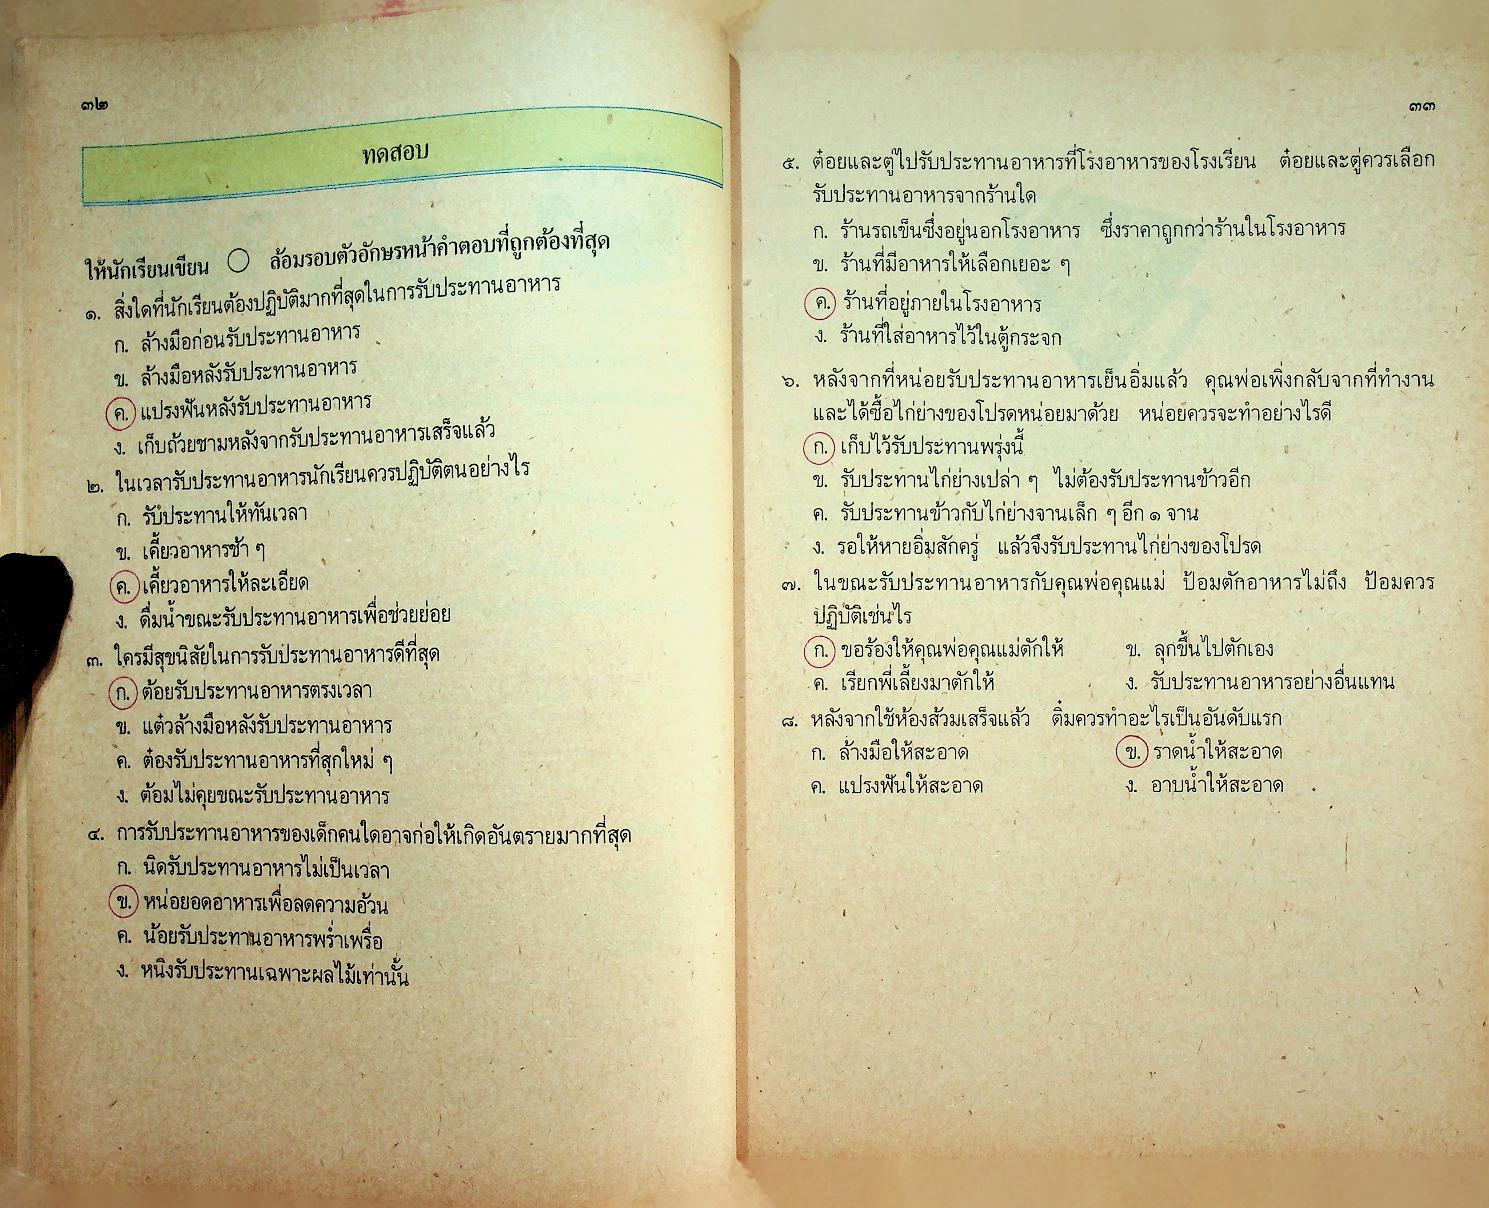 ๓๒
ทดสอบ
ให้นักเรียนเขียน ○ ล้อมรอบตัวอักษรหน้าคำตอบที่ถูกต้องที่สุด
๑. สิ่งใดที่นักเรียนต้องปฏิบัติมากที่สุดในการรับประทานอาหาร
ก. ล้างมือก่อนรับประทานอาหาร
ข. ล้างมือหลังรับประทานอาหาร
ค. แปรงฟันหลังรับประทานอาหาร
ง. เก็บถ้วยชามหลังจากรับประทานอาหารเสร็จแล้ว
๒. ในเวลารับประทานอาหารนักเรียนควรปฏิบัติตนอย่างไร
ก. รับประทานให้ทันเวลา
ข. เคี้ยวอาหารช้า ๆ
ค. เคี้ยวอาหารให้ละเอียด
ง. ดื่มน้ำขณะรับประทานอาหารเพื่อช่วยย่อย
๓. ใครมีสุขนิสัยในการรับประทานอาหารดีที่สุด
ก. ต้อยรับประทานอาหารตรงเวลา
ข. แต๋วล้างมือหลังรับประทานอาหาร
ค. ต๋องรับประทานอาหารที่สุกใหม่ ๆ
ง. ต้อมไม่คุยขณะรับประทานอาหาร
๔. การรับประทานอาหารของเด็กคนใดอาจก่อให้เกิดอันตรายมากที่สุด
ก. นิดรับประทานอาหารไม่เป็นเวลา
ข. หน่อยอดอาหารเพื่อลดความอ้วน
ค. น้อยรับประทานอาหารพร่ำเพรื่อ
ง. หนิงรับประทานเฉพาะผลไม้เท่านั้น
๓๓
๕. ต๋อยและตู่ไปรับประทานอาหารที่โรงอาหารของโรงเรียน ต๋อยและตู่ควรเลือก
รับประทานอาหารจากร้านใด
ก. ร้านรถเข็นซึ่งอยู่นอกโรงอาหาร ซึ่งราคาถูกกว่าร้านในโรงอาหาร
ข. ร้านที่มีอาหารให้เลือกเยอะ ๆ
ค. ร้านที่อยู่ภายในโรงอาหาร
ง. ร้านที่ใส่อาหารไว้ในตู้กระจก
๖. หลังจากที่หน่อยรับประทานอาหารเย็นอิ่มแล้ว คุณพ่อเพิ่งกลับจากที่ทำงาน
และได้ซื้อไก่ย่างของโปรดหน่อยมาด้วย หน่อยควรจะทำอย่างไรดี
ก. เก็บไว้รับประทานพรุ่งนี้
ข. รับประทานไก่ย่างเปล่า ๆ ไม่ต้องรับประทานข้าวอีก
ค. รับประทานข้าวกับไก่ย่างจานเล็ก ๆ อีก ๑ จาน
ง. รอให้หายอิ่มสักครู่ แล้วจึงรับประทานไก่ย่างของโปรด
๗. ในขณะรับประทานอาหารกับคุณพ่อคุณแม่ ป้อมตักอาหารไม่ถึง ป้อมควร
ปฏิบัติเช่นไร
ก. ขอร้องให้คุณพ่อคุณแม่ตักให้ ข. ลุกขึ้นไปตักเอง
ค. เรียกพี่เลี้ยงมาตักให้ ง. รับประทานอาหารอย่างอื่นแทน
๘. หลังจากใช้ห้องส้วมเสร็จแล้ว ติ๋มควรทำอะไรเป็นอันดับแรก
ก. ล้างมือให้สะอาด ข. ราดน้ำให้สะอาด
ค. แปรงฟันให้สะอาด ง. อาบน้ำให้สะอาด